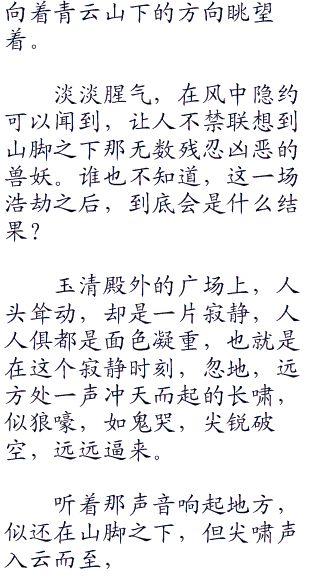 向着青云山下的方向眺望
着。
淡淡腥气，在风中隐约
可以闻到，让人不禁联想到
山脚之下那无数残忍凶恶的
兽妖。谁也不知道，这一场
浩劫之后，到底会是什么结
果？
玉清殿外的广场上，人
头耸动，却是一片寂静，人
人俱都是面色凝重，也就是
在这个寂静时刻，忽地，远
方处一声冲天而起的长啸，
似狼嚎，如鬼哭，尖锐破
空，远远逼来。
听着那声音响起地方，
似还在山脚之下，但尖啸声
入云而至，